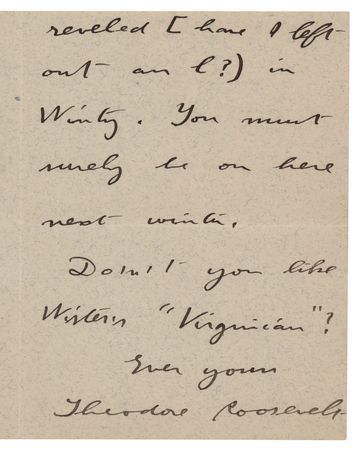 reveled [have I left
out an l?) in
Winty. You must
surely be on here
next winter.
Don't you like
Wister's "Virginian"?
Ever yours
Theodore Roosevelt